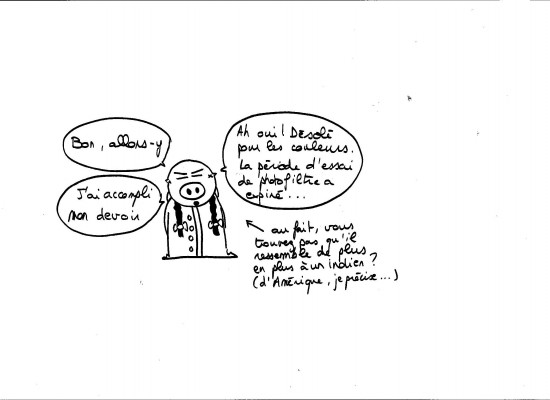 Bon, allons-y
J'ai accompli
mon devoir
Ah oui! Desolé
pour les couleurs.
La période d'essai
de photofiltre a
expiré...
au fait, vous
trouvez pas qu'il
ressemble de plus
en plus à un indien ?
(d'Amérique, je précise...)